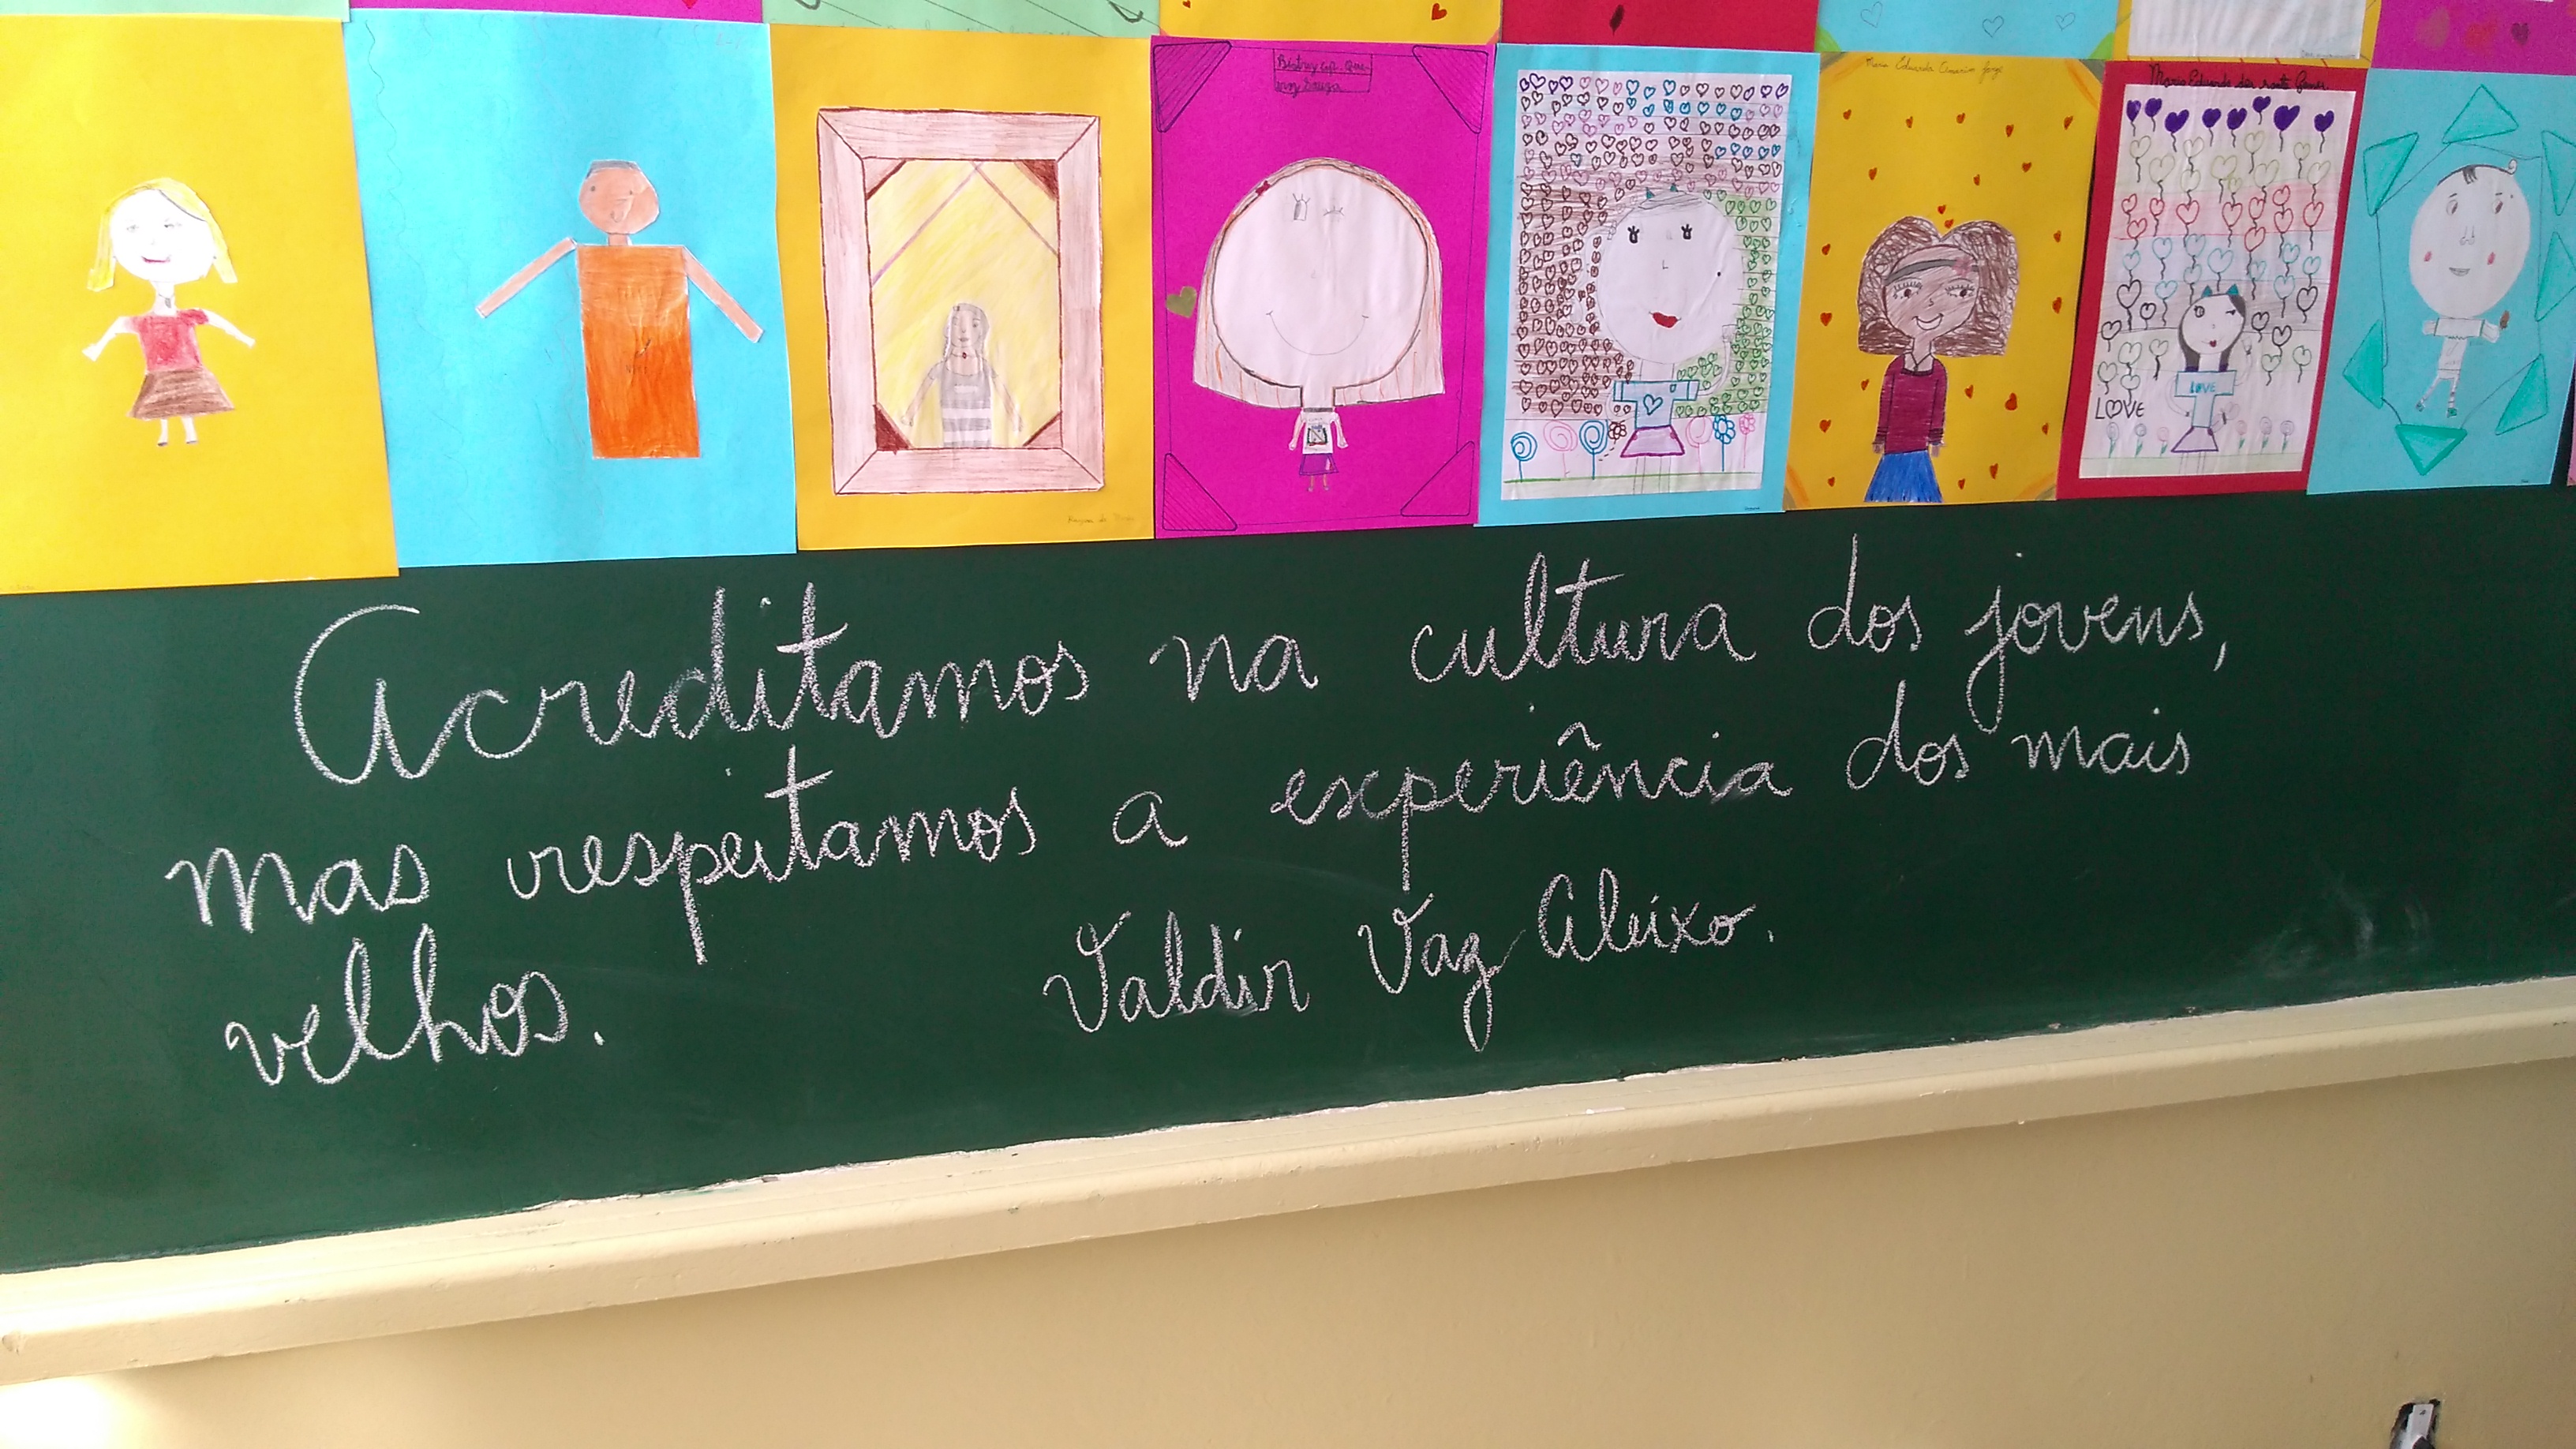 Maria Eduarda
Maria Eduarda
LOVE
LOVE
Acreditamos na cultura dos jovens,
mas respeitamos a experiência dos mais
velhos.
Valdir Vaz Aleixo.